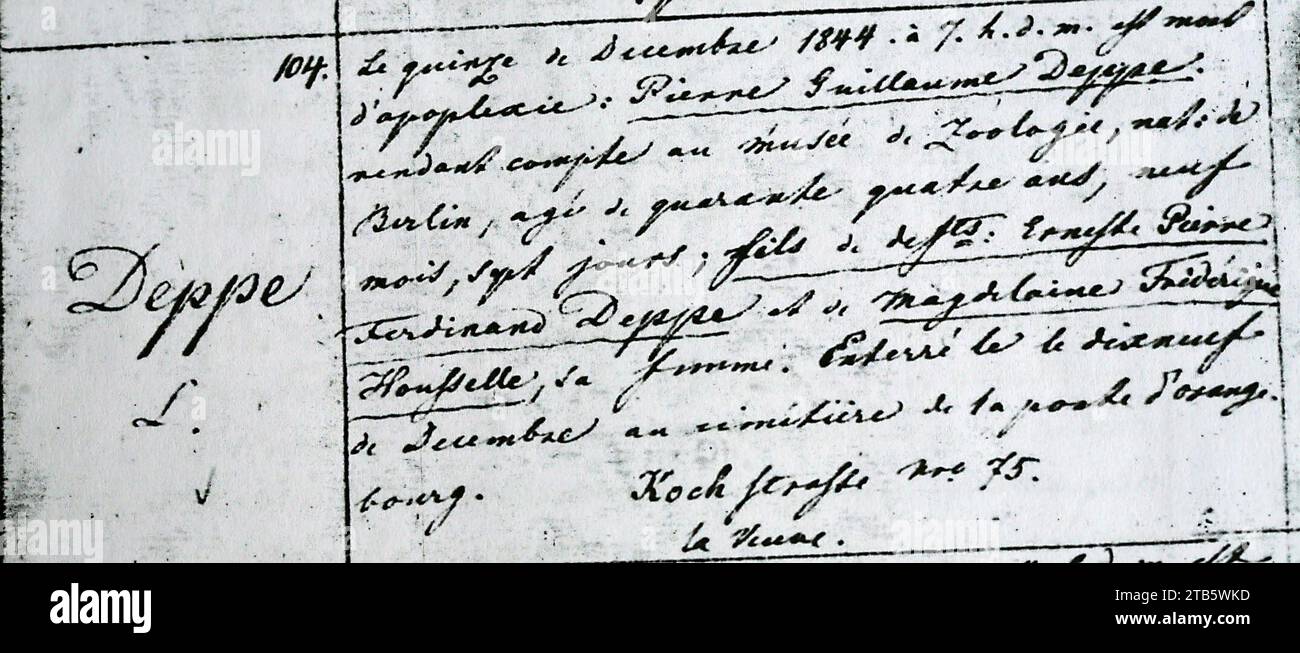 104. Le quinze de Decembre 1844. à 7. h. d. m. est mort
d'apoplexie: Pierre Guillaume Deppe.
rendant compte au musée de Zoologie, nat: de
Berlin, agé de quarante quatre ans, neuf
mois, sept jours; fils de defts: Erneste Pierre
Ferdinand Deppe et de Magdelaine Frédérique
Housselle, sa femme. Enterré le le dixneuf
de Decembre au cimetière de la porte d'orange-
bourg. Koch strasse nro 75.
la Veuve.
Deppe
L.
alamy
Image ID: 2TB5WKD
www.alamy.com